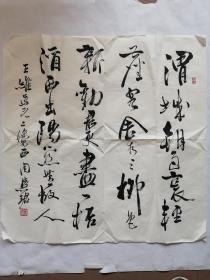 渭城朝雨裛輕
塵客舍青々柳色
新勸君更盡一杯
酒西出陽關無故人
王維送元二使安西 周慧珺